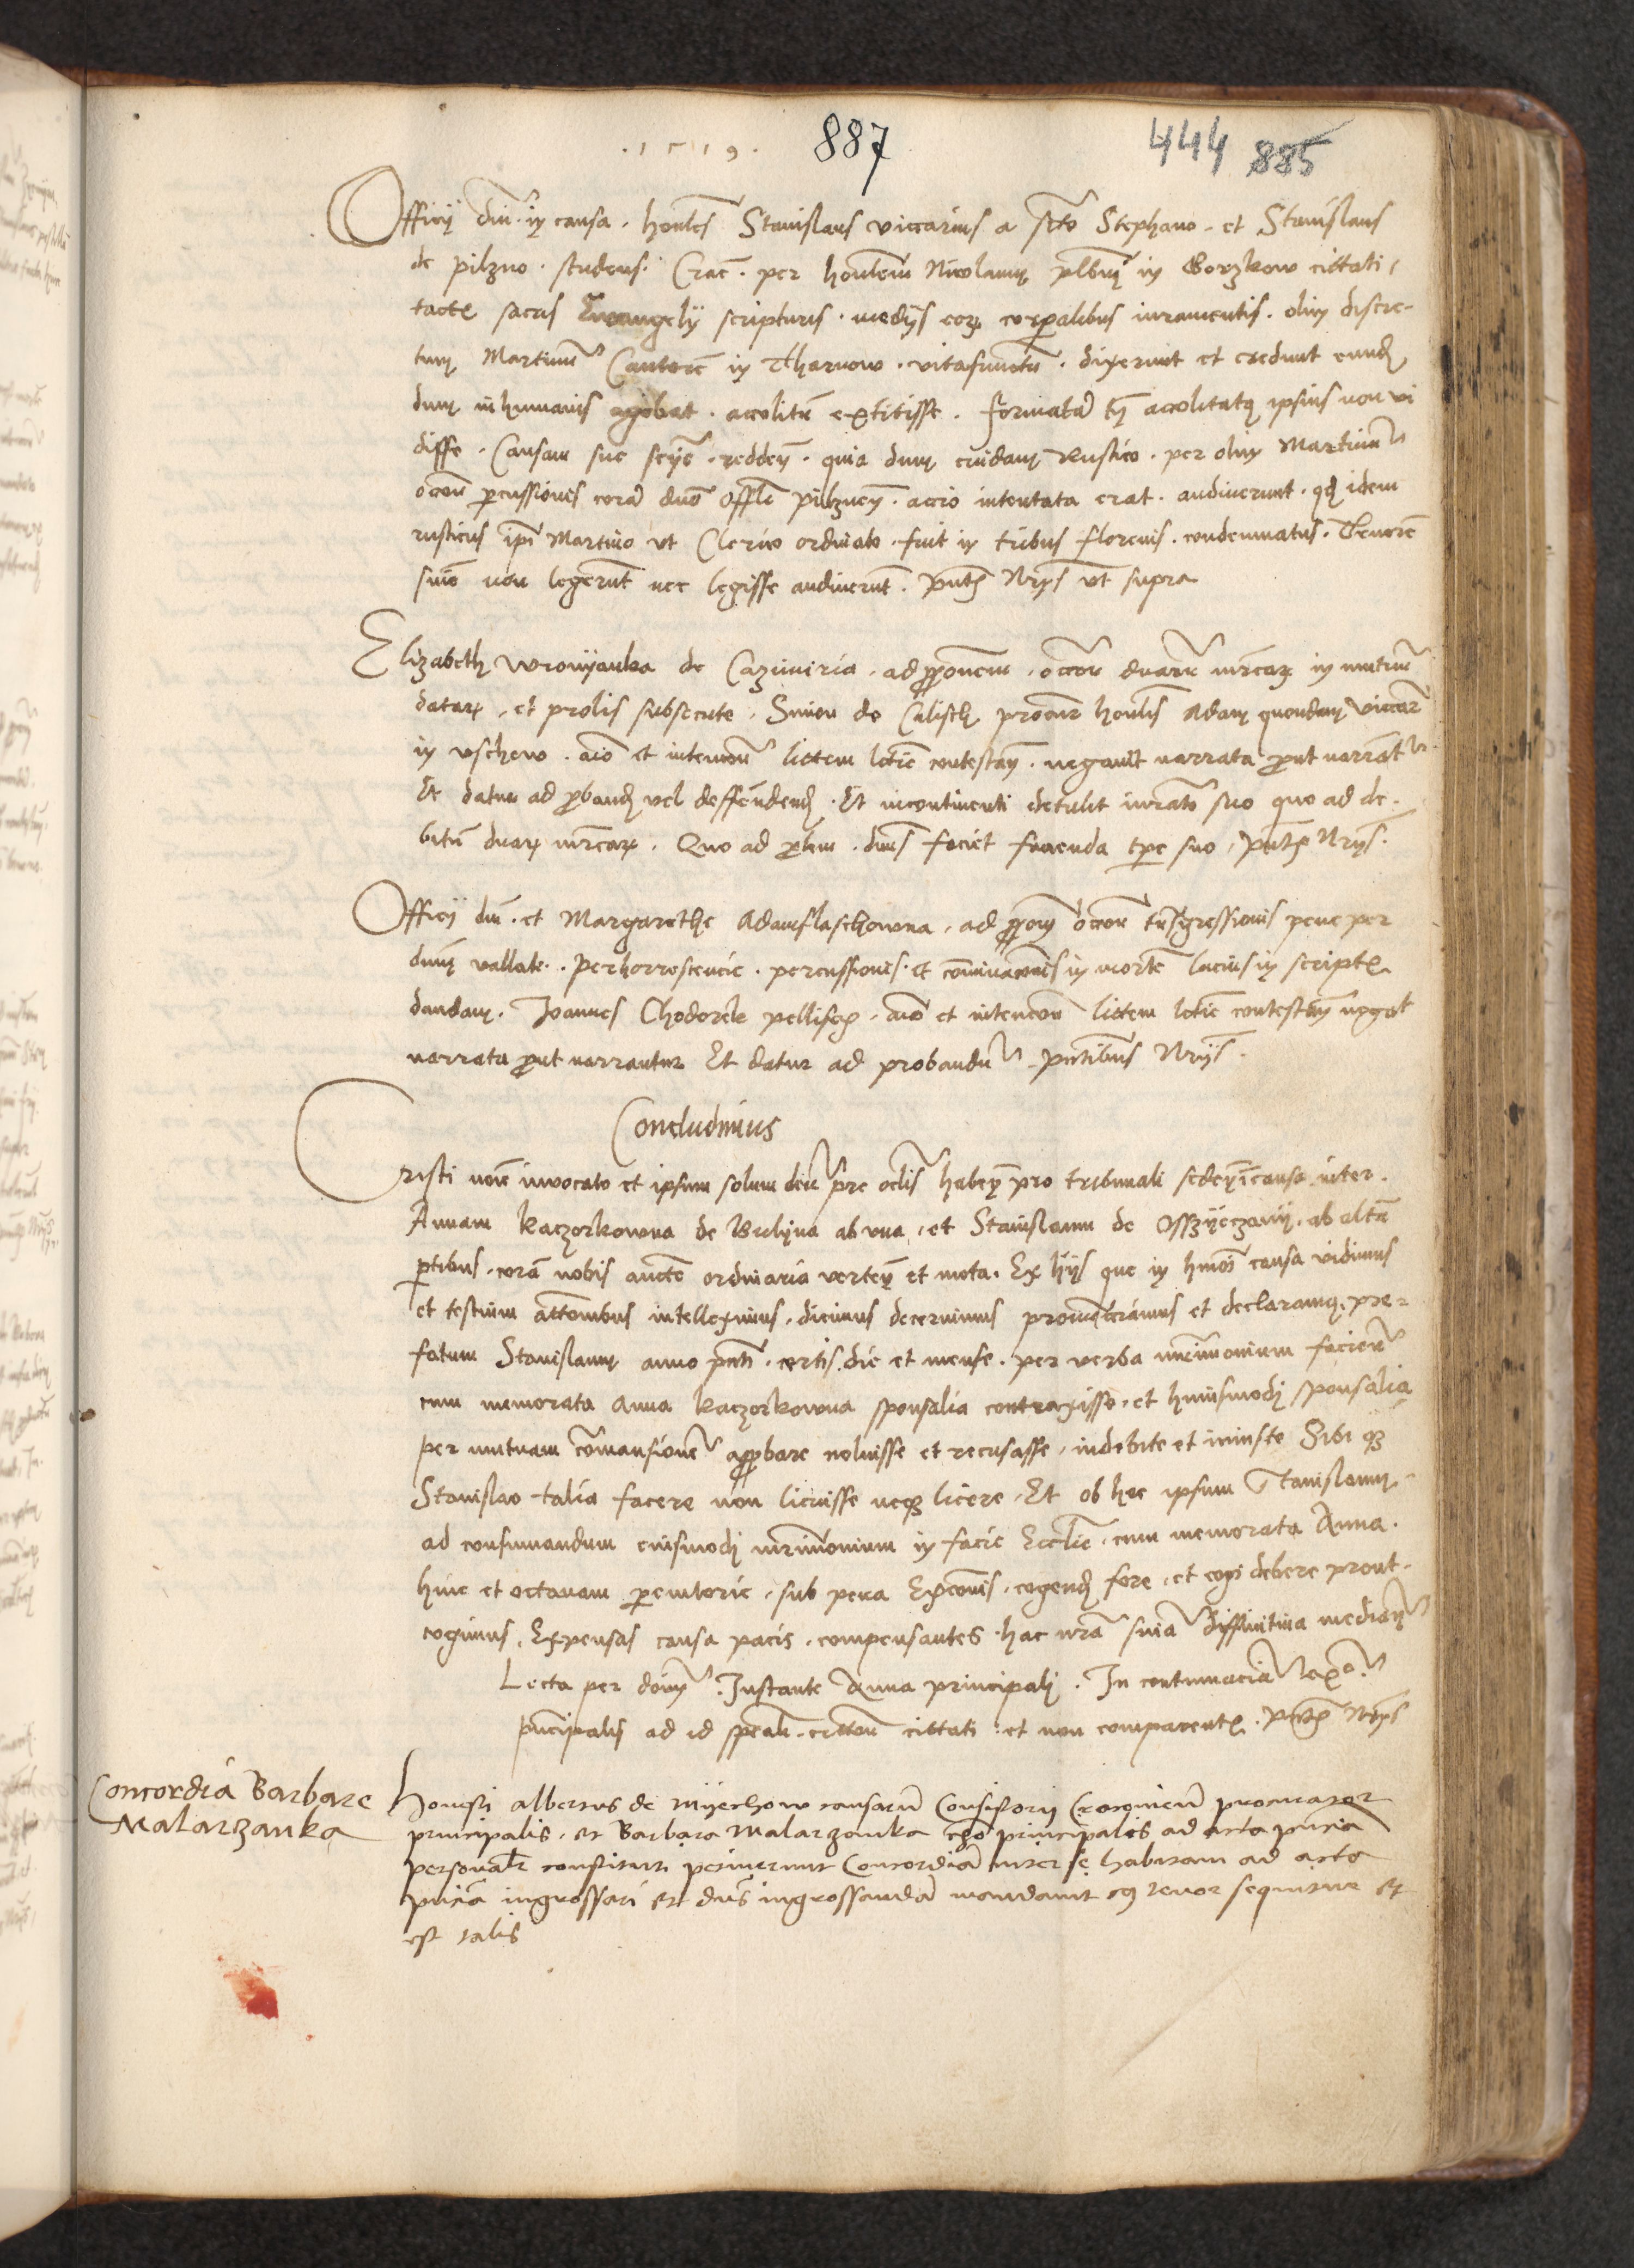 .1519. 887 444 885
Officij dni in causa . honles Stanislaus viccarius a scto Stephano . et Stanislaus
de pilzno . studens . Crac . per honlem Nicolaum plbnum in Gorzkow cittati /
tacte sacris Ewangelij scripturis . medijs eorum corporalibus iuramentis . olim discre-
tum Martinum Cantorem in Tharnow . vitafunctum . dixerunt et credunt eundem
dum in humanis agebat . accolitum extitisse . formatam tn accolitatus ipsius non vi
disse . Causam sue scie . redden . quia dum cuidam Rustico . per olim Martinum
occone percussionis coram dno Offli pilznen . accio intentata erat . audiuerunt . qd idem
rusticus ipi Martino vt Clerico ordinato . fuit in tribus florenis . condemnatus . Tenore
snie non legerunt nec legisse audiuerunt . pntbs Nrijs vt supra
Elizabeth Wronijanka de Cazimiria . ad pponem . occone duarum mrcarum in mutuum
datarum . et prolis subsecute . Simon de Calisch procur honlis Adam quondam viccar
in vschew . aio et intencone littem lctie contestan . negauit narrata put narrantur
Et datur ad pband vel deffendend . Et incontinenti detulit iurato suo quo ad de-
bitum duarum mrcarum . Quo ad plem . dnus faciet facienda tpe suo , pntbs Nrijs .
Officij dni . et Margarethe Adamflaschowna . ad pponem occone tnsgressionis pene per
dnum vallate . perhorrescencie . percussionis . et comminaconis in morte lacius in scriptis
dandam . Joannes Chodorek pellifex . aio et intencone littem lctie contestan negat
narrata put narrantur Et datur ad probandum . pntibus Nrijs .
Concludimus
Cristi noie inuocato et ipsum solum deum pre oclis haben pro tribunali seden in causa inter .
Annam kaczorkowna de ab vna . et Stanislaum de ab altera
ptibus . coram nobis aucte ordinaria verten et mota . Ex hijs que in hmoi causa vidimus
et testium attombus intelleximus . dicimus decernimus pronunctiamus et declaramus . pre-
fatum Stanislaum anno pnti . certis die et mense . per verba mrimonium facien
cum memorata Anna kaczorkowna sponsalia contraxisse . et huiusmodi sponsalia
per mutuam comansionem apprbare noluisse et recusasse . indebite et iniuste Sibi qz
Stanislao talia facere non licuisse neqz licere . Et ob hec ipsum Stanislaum
ad consumandum eiusmodi mrimonium in facie Ecclie . cum memorata Anna .
hinc et octauam pemtorie . sub pena Exconis . cogend fore . et cogi debere prout .
cogimus . Expensas causa pacis . compensantes . hac nra snia diffinitiua median
Lecta per dnum . Instante Anna principali . In contumaciam
principalis ad id spealr . cittati . et non comparentis . pntbs Nrijs
Concordia Barbare
Malarzanka
Honesti albertus de Mijechow causarum Consistorij Cracouien procurator
principalis . et Barbara Malarzanka principalis ad acta pncia
personalr constituti petiuerunt Concordiam inter se habitam ad acta
pncia ingrossari et dnus ingrossandam mandauit cuius tenor sequitur et
est talis